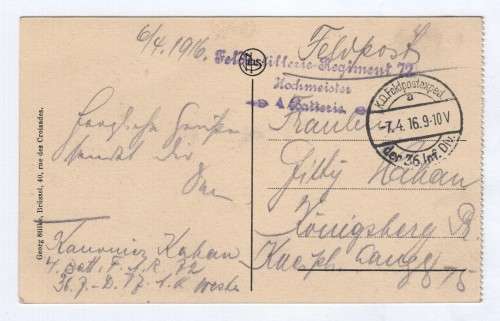 6/4. 1916.
Feldpost
Feldartillerie-Regiment 72
Hochmeister
4. Batterie
K.D. Feldpostexped.
a
-7.4.16. 9-10 V
der 36. Inf. Div.
Fräulein
Kahan
Königsberg
Herzliche Grüße
sendet Dir
Kanonier Kahan
4. Batt. F. A. R. 72
36. J.-D. 17. A. K. Westen
Georg Stilke, Brüssel, 40, rue des Croisades.